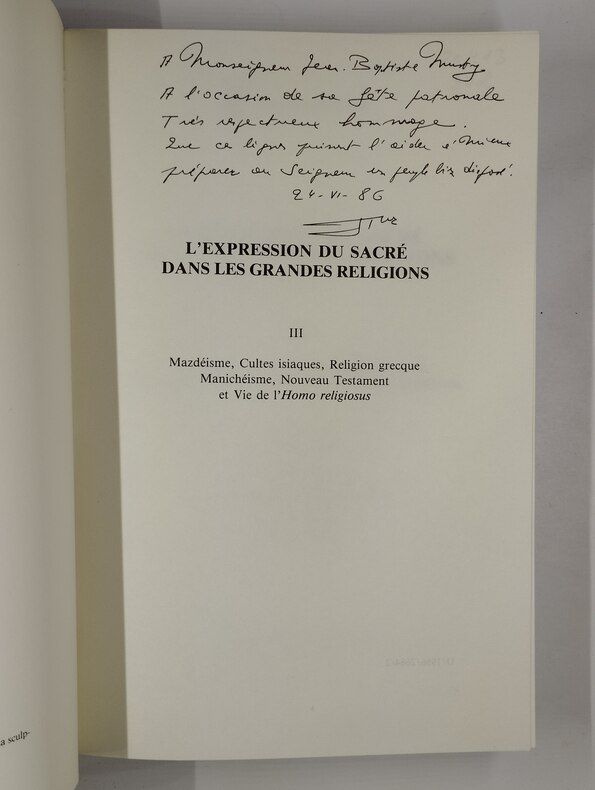 A Monseigneur Jean-Baptiste Musty
A l'occasion de sa fête patronale
Très respectueux hommage.
Que ces lignes puissent l'aider à mieux
préparer au Seigneur un peuple bien disposé.
24-VI-86
L'EXPRESSION DU SACRÉ
DANS LES GRANDES RELIGIONS
III
Mazdéisme, Cultes isiaques, Religion grecque
Manichéisme, Nouveau Testament
et Vie de l'Homo religiosus
a sculp-